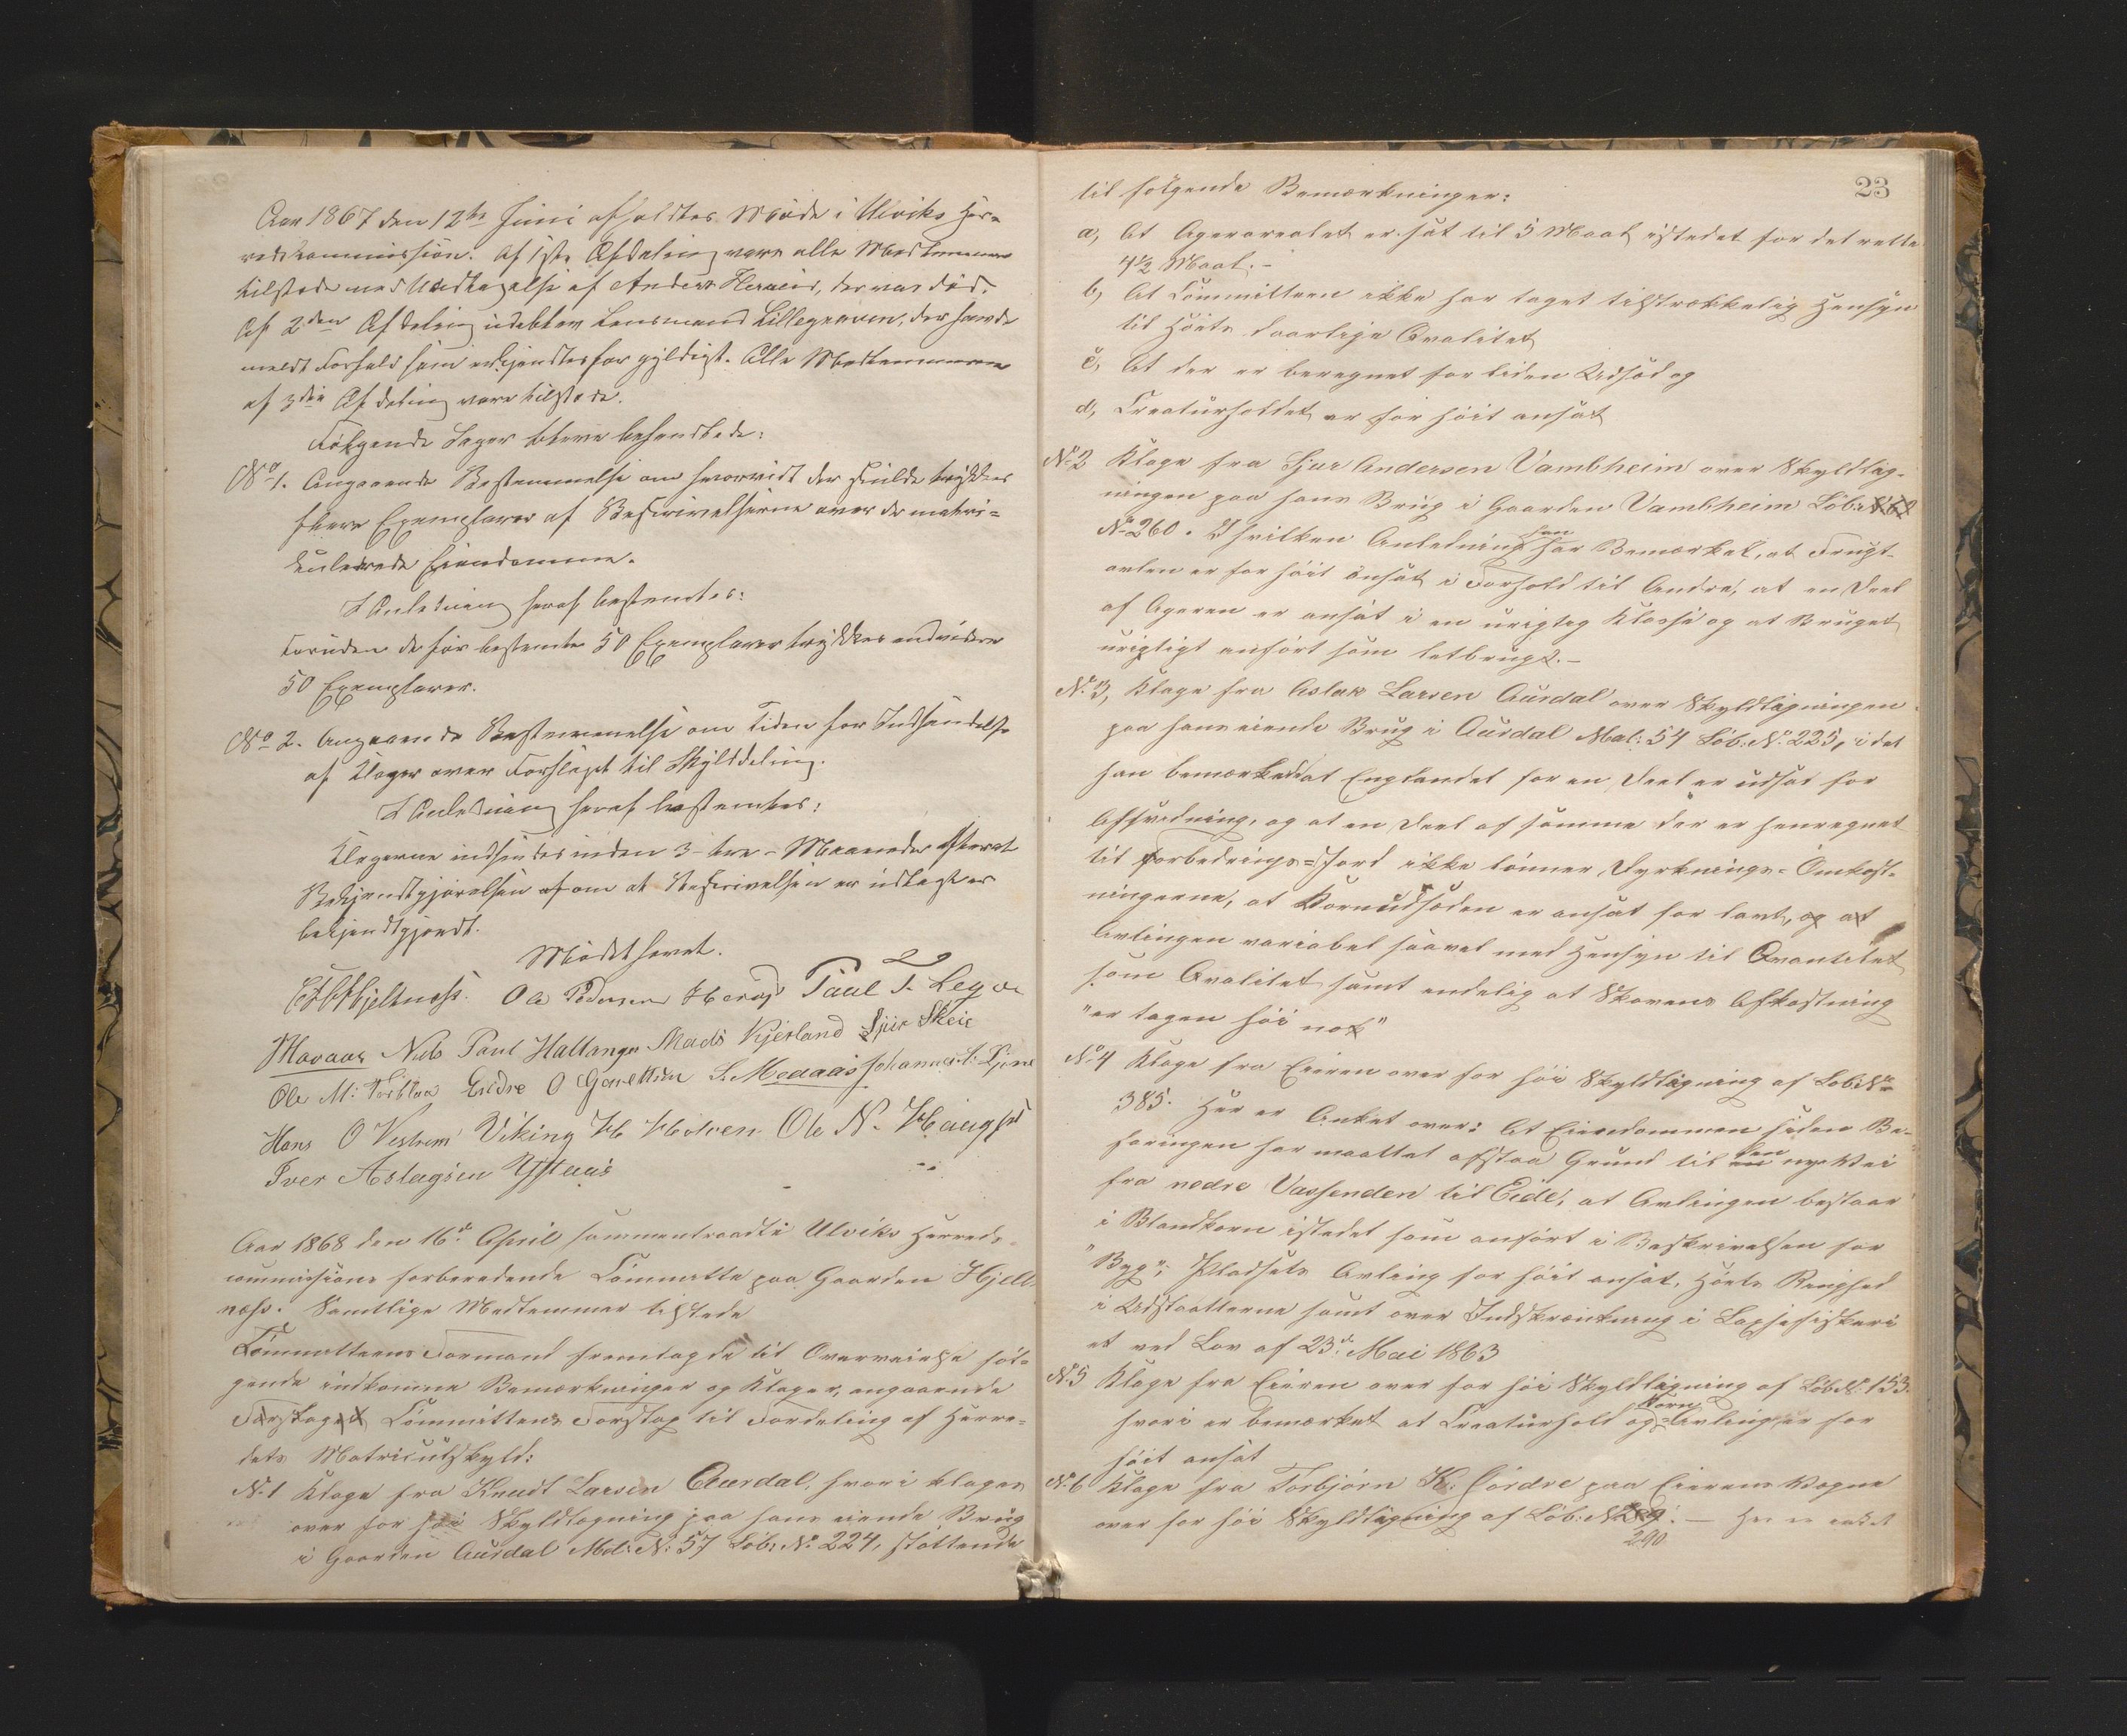 Aar 1867 den 12te Juni afholdtes Møde i Ulviks Her-
redskommission. Af 1ste Afdeling vare alle Medlemmer
tilstede med Undtagelse af Anders Hereid, der var død.
Af 2den Afdeling udeblev Lensmand Lillegraven, der havde
meldt Forfald som erkjendtes for gyldigt. Alle Medlemmerne
af 3die Afdeling vare tilstede.
Følgende Sager bleve behandlede:
No 1. Angaaende Bestemmelse om hvorvidt der skulde trykkes
flere Exemplarer af Beskrivelserne over de matri-
kulerede Eiendomme.
I Anledning heraf bestemtes:
Foruden de før bestemte 50 Exemplarer trykkes endvidere
50 Exemplarer.
No 2. Angaaende Bestemmelse om Tiden for Indsendelse
af Klager over Forslaget til Skylddeling.
I Anledning heraf bestemtes:
Klagerne indsendes inden 3 - tre - Maaneder efterat
Bekjendtgjørelsen om at Beskrivelsen er udlagt er
bekjendtgjordt.
Mødet hævet.
Hjeltnæss. Ole Pedersen Paul T. Leqve
Havaas Nils Paul Hallanger Mads Kjerland Sjur Skeie
Ole M: Endre O S. Medaas Johannes
Hans O Vestrem Viking H Ole N.
Iver Aslagsen Ystaas
Aar 1868 den 16de April sammentraadte Ulviks Herreds-
commissions forberedende Committe paa Gaarden Hjelt-
næss. Samtlige Medlemmer tilstede
Committeens Formand fremlagde til Overveielse føl-
gende indkomne Bemærkninger og Klager, angaaende
Committeens Forslag til Fordeling af Herre-
dets Matriculskyld:
N. 1 Klage fra Knudt Larsen Aurdal, hvori klages
over for høi Skyldlægning paa hans eiende Brug
i Gaarden Aurdal Mat: N: 57 Løb: No 224, støttende
23
til følgende Bemærkninger:
a, At Agerarealet er sat til 5 Maal istedet for det rette
4½ Maal. -
b, At Committeen ikke har taget tilstrækkelig Hensyn
til Høets daarlige Qvalitet
c, At der er beregnet for liden Udsæd og
d, Creaturholdet er for høit ansat
No 2 Klage fra Sjur Andersen Vambheim over Skyldlæg-
ningen paa hans Brug i Gaarden Vambheim Løb:
No 260. I hvilken Anledning han har Bemærket, at Frugt-
avlen er for høit ansat i Forhold til Andre, at en Deel
af Ageren er ansat i en urigtig Klasse og at Bruget
urigtigt anført som letbrugt. -
No 3, Klage fra Aslak Larsen Aurdal over Skyldlægningen
paa hans eiende Brug i Aurdal Mat: 54 Løb: No 225, idet
han bemærkede at Englandet for en Deel er udsat for
Affskridning, og at en Deel af samme der er henregnet
til Forbedrings-Jord ikke lønner Dyrknings-Omkost-
ningerne, at Kornudsæden er ansat for lavt, og at
Avlingen variabel saavel med Hensyn til Qvantitet
som Qvalitet samt endelig at Skovens Afkastning
"er tagen høi nok"
No 4 Klage fra Eieren over for høi Skyldlægning af Løb: No
385. Her er Anket over: At Eiendommen siden Be-
faringen har maattet afstaa Grund til den nye Vei
fra nedre Vassenden til Eide, at Avlingen bestaar
i Blandkorn istedet som anført i Beskrivelsen for
"Byg", Pladsets Avling for høit ansat, Høets Ringhed
i Udslaatterne samt over Indskrænkning i Laxefiskeri
et ved Lov af 23de Mai 1863
No 5 Klage fra Eieren over for høi Skyldlægning af Løb No 153.
hvori er bemærket at Creaturhold og Korn-Avling er for
høit ansat
No 6 Klage fra Torbjørn K. Gjørdre paa Eierens Vegne
over for høi Skyldlægning af Løb: N - Her er anket
290